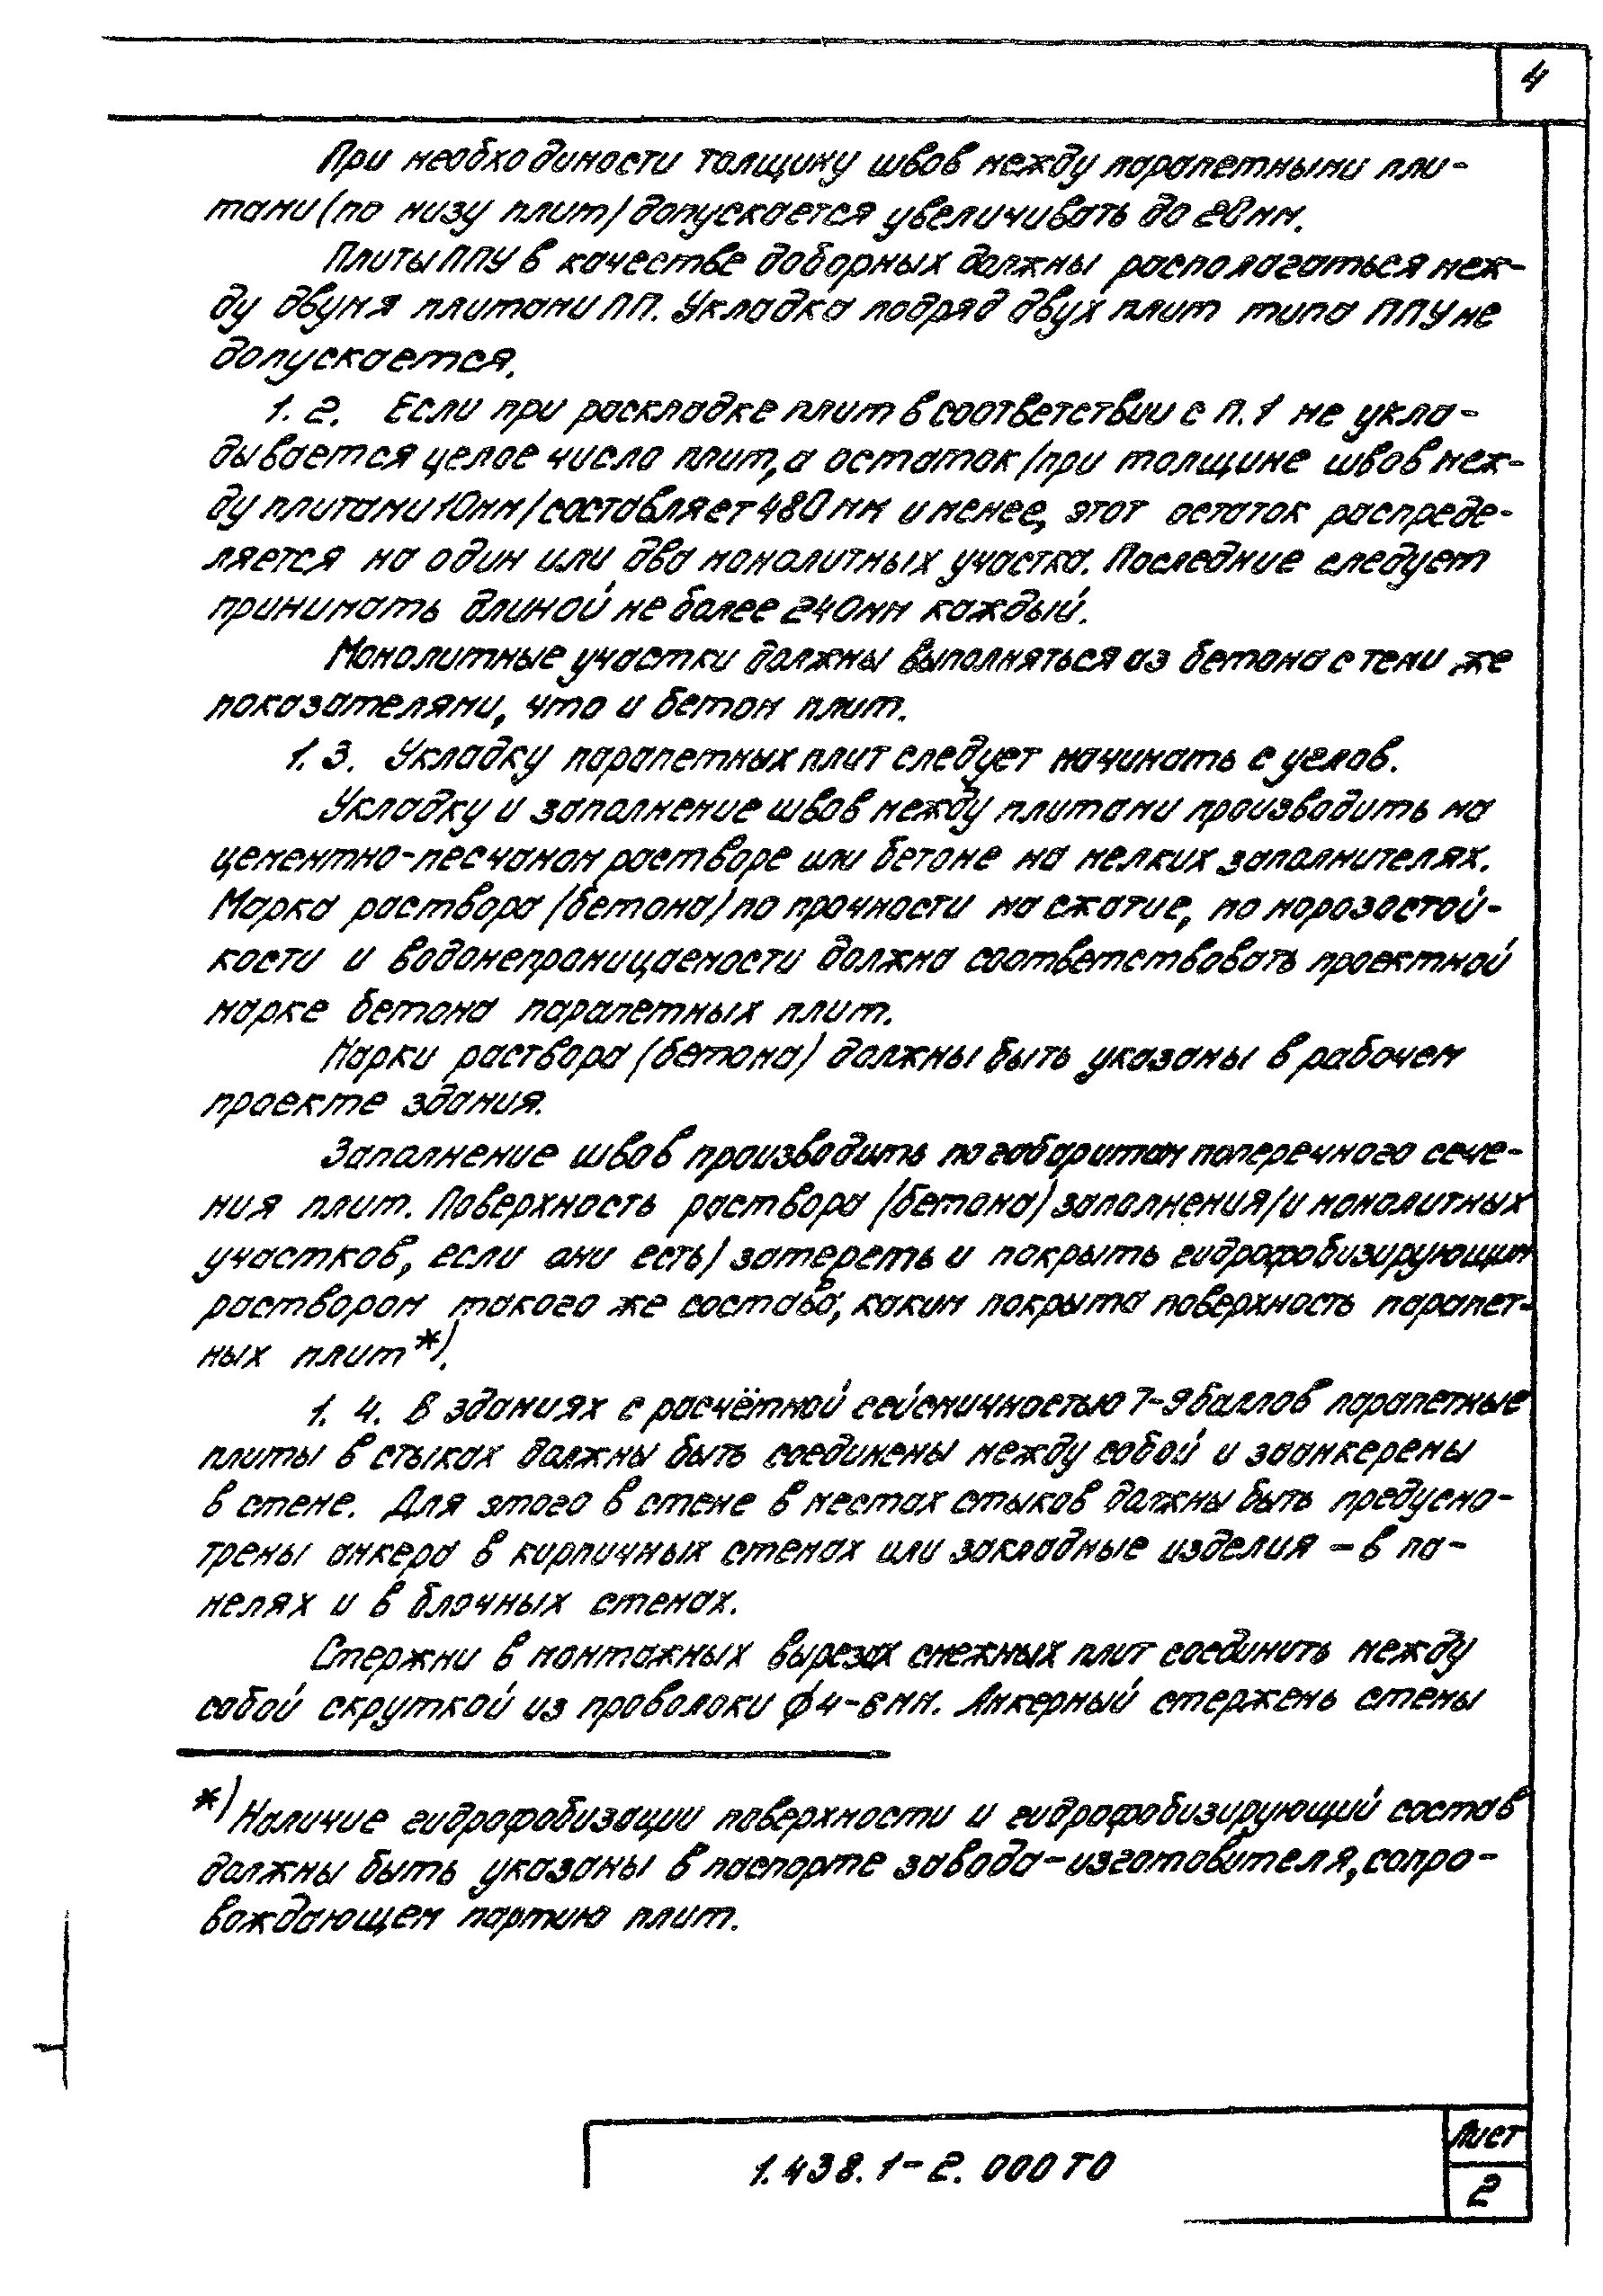 4
При необходимости толщину швов между парапетными пли-
тами (по низу плит) допускается увеличивать до 20 мм.
Плиты ППУ в качестве доборных должны располагаться меж-
ду двумя плитами ПП. Укладка подряд двух плит типа ППУ не
допускается.
1.2. Если при раскладке плит в соответствии с п.1 не укла-
дывается целое число плит, а остаток /при толщине швов меж-
ду плитами 10мм/ составляет 480 мм и менее, этот остаток распреде-
ляется на один или два монолитных участка. Последние следует
принимать длиной не более 240мм каждый.
Монолитные участки должны выполняться из бетона с теми же
показателями, что и бетон плит.
1.3. Укладку парапетных плит следует начинать с углов.
Укладку и заполнение швов между плитами производить на
цементно-песчаном растворе или бетоне на мелких заполнителях.
Марка раствора (бетона) по прочности на сжатие, по морозостой-
кости и водонепроницаемости должна соответствовать проектной
марке бетона парапетных плит.
Марки раствора (бетона) должны быть указаны в рабочем
проекте здания.
Заполнение швов производить по габаритам поперечного сече-
ния плит. Поверхность раствора (бетона) заполнения (и монолитных
участков, если они есть) затереть и покрыть гидрофобизирующим
раствором такого же состава, каким покрыта поверхность парапет-
ных плит *).
1.4. В зданиях с расчётной сейсмичностью 7-9 баллов парапетные
плиты в стыках должны быть соединены между собой и заанкерены
в стене. Для этого в стене в местах стыков должны быть предусмо-
трены анкера в кирпичных стенах или закладные изделия - в па-
нелях и в блочных стенах.
Стержни в монтажных вырезах смежных плит соединить между
собой скруткой из проволоки ф 4-6мм. Анкерный стержень стены
*) Наличие гидрофобизации поверхности и гидрофобизирующий состав
должны быть указаны в паспорте завода-изготовителя, сопро-
вождающем партию плит.
1.438.1-2.000 ТО
Лист
2